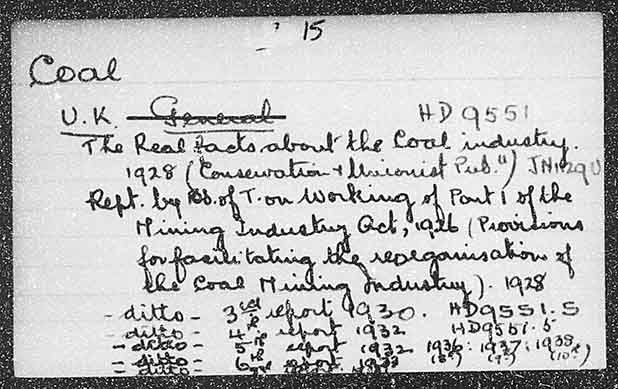 15
Coal
U.K. General HD 9551
The Real Facts about the Coal industry.
1928 ("Conservation & Unionist Pub.") JN1129U
Rept. by Bd. of T. on Working of Part I of the
Mining Industry Act, 1926 (Provisions
for facilitating the reorganisation of
the Coal Mining Industry). 1928
- ditto - 3rd report 1930. HD9551.5
- ditto - 4th report 1932 HD9551.5
- ditto - 5th report 1932 1936: 1937: 1938
- ditto - 6th report 1933 (8th) (9th) (10th)
- ditto -